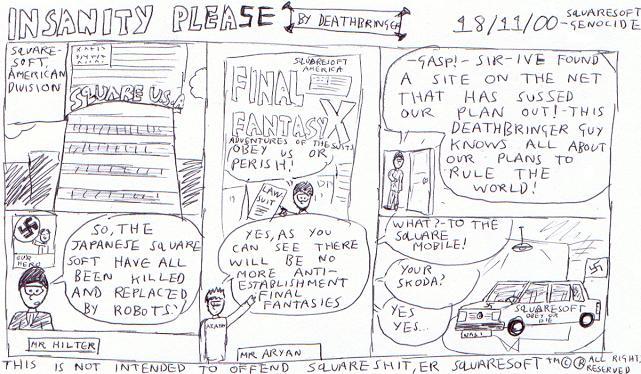 INSANITY PLEASE
BY DEATHBRINGER
18/11/00
SQUARESOFT
-GENOCIDE
SQUARE-
SOFT,
AMERICAN
DIVISION
SQUARE USA
SO, THE
JAPANESE SQUARE
SOFT HAVE ALL
BEEN KILLED
AND REPLACED
BY ROBOTS?
OUR
HERO
MR HILTER
SQUARESOFT
AMERICA
FINAL
FANTASY X
ADVENTURES OF THE SUITS
OBEY US OR
PERISH!
LAW
SUIT
YES, AS YOU
CAN SEE THERE
WILL BE NO
MORE ANTI-
ESTABLISHMENT
FINAL
FANTASIES
MR ARYAN
-GASP!- SIR-IVE FOUND
A SITE ON THE NET
THAT HAS SUSSED
OUR PLAN OUT!-THIS
DEATHBRINGER GUY
KNOWS ALL ABOUT
OUR PLANS TO
RULE THE
WORLD!
WHAT?-TO THE
SQUARE
MOBILE!
YOUR
SKODA?
YES
YES...
SQUARESOFT
OBEY OR
DIE
NAZI
THIS IS NOT INTENDED TO OFFEND SQUARESHIT, ER SQUARESOFT ™ © ® ALL RIGHT,
RESERVED